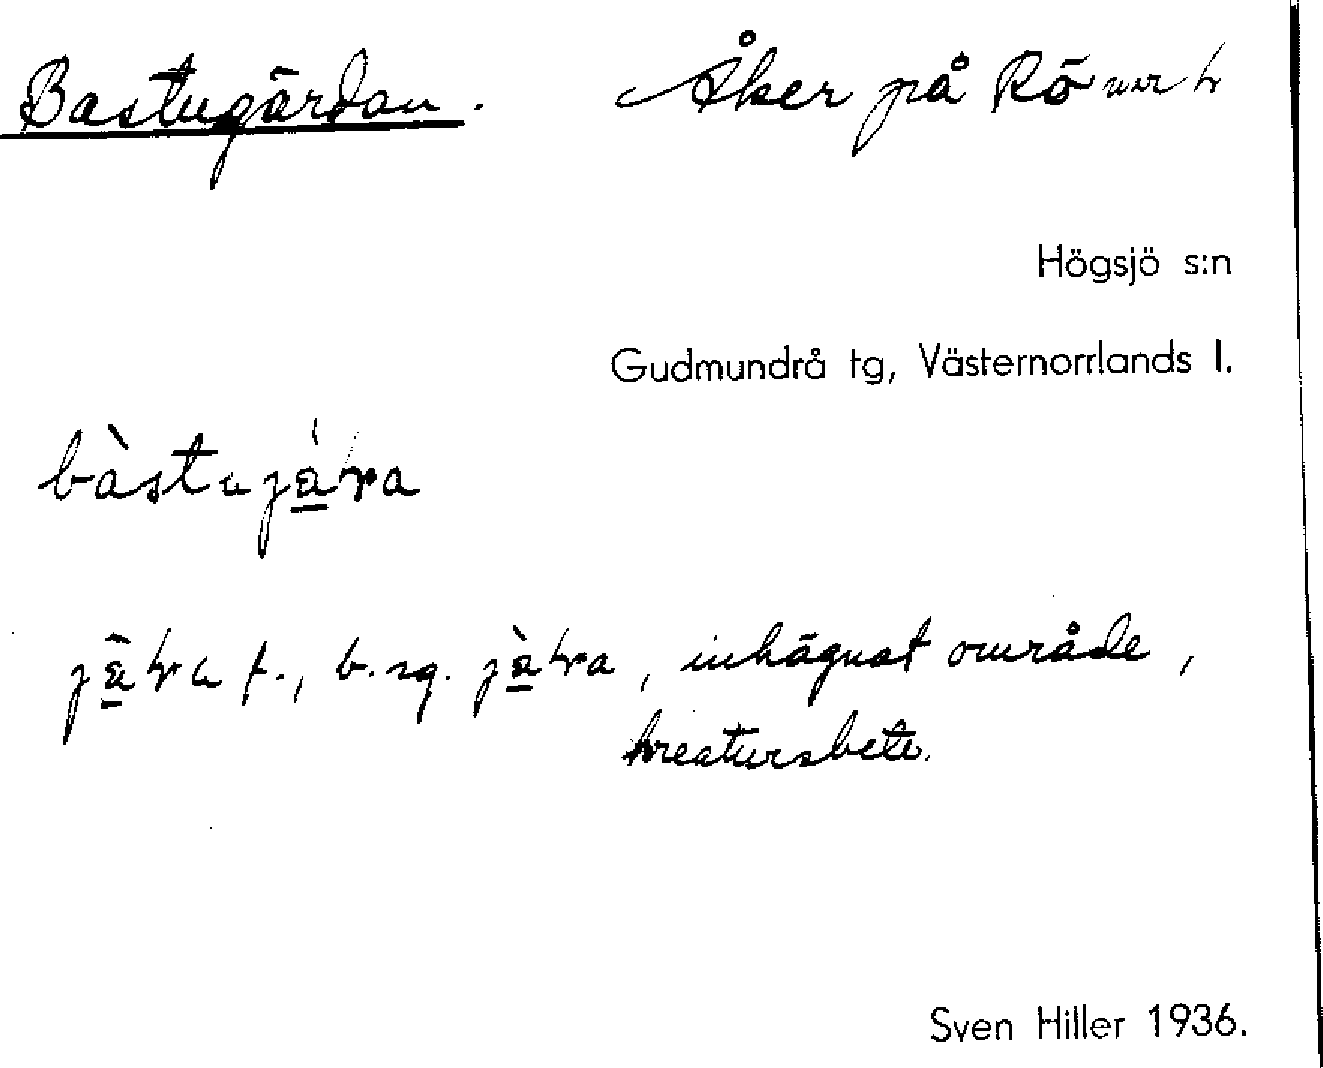 Bastugärdan. Åker på Rö
Högsjö s:n
Gudmundrå tg, Västernorrlands l.
bàstuja̲ra
f., b. sg. inhägnat område,
kreatursbete.
Sven Hiller 1936.